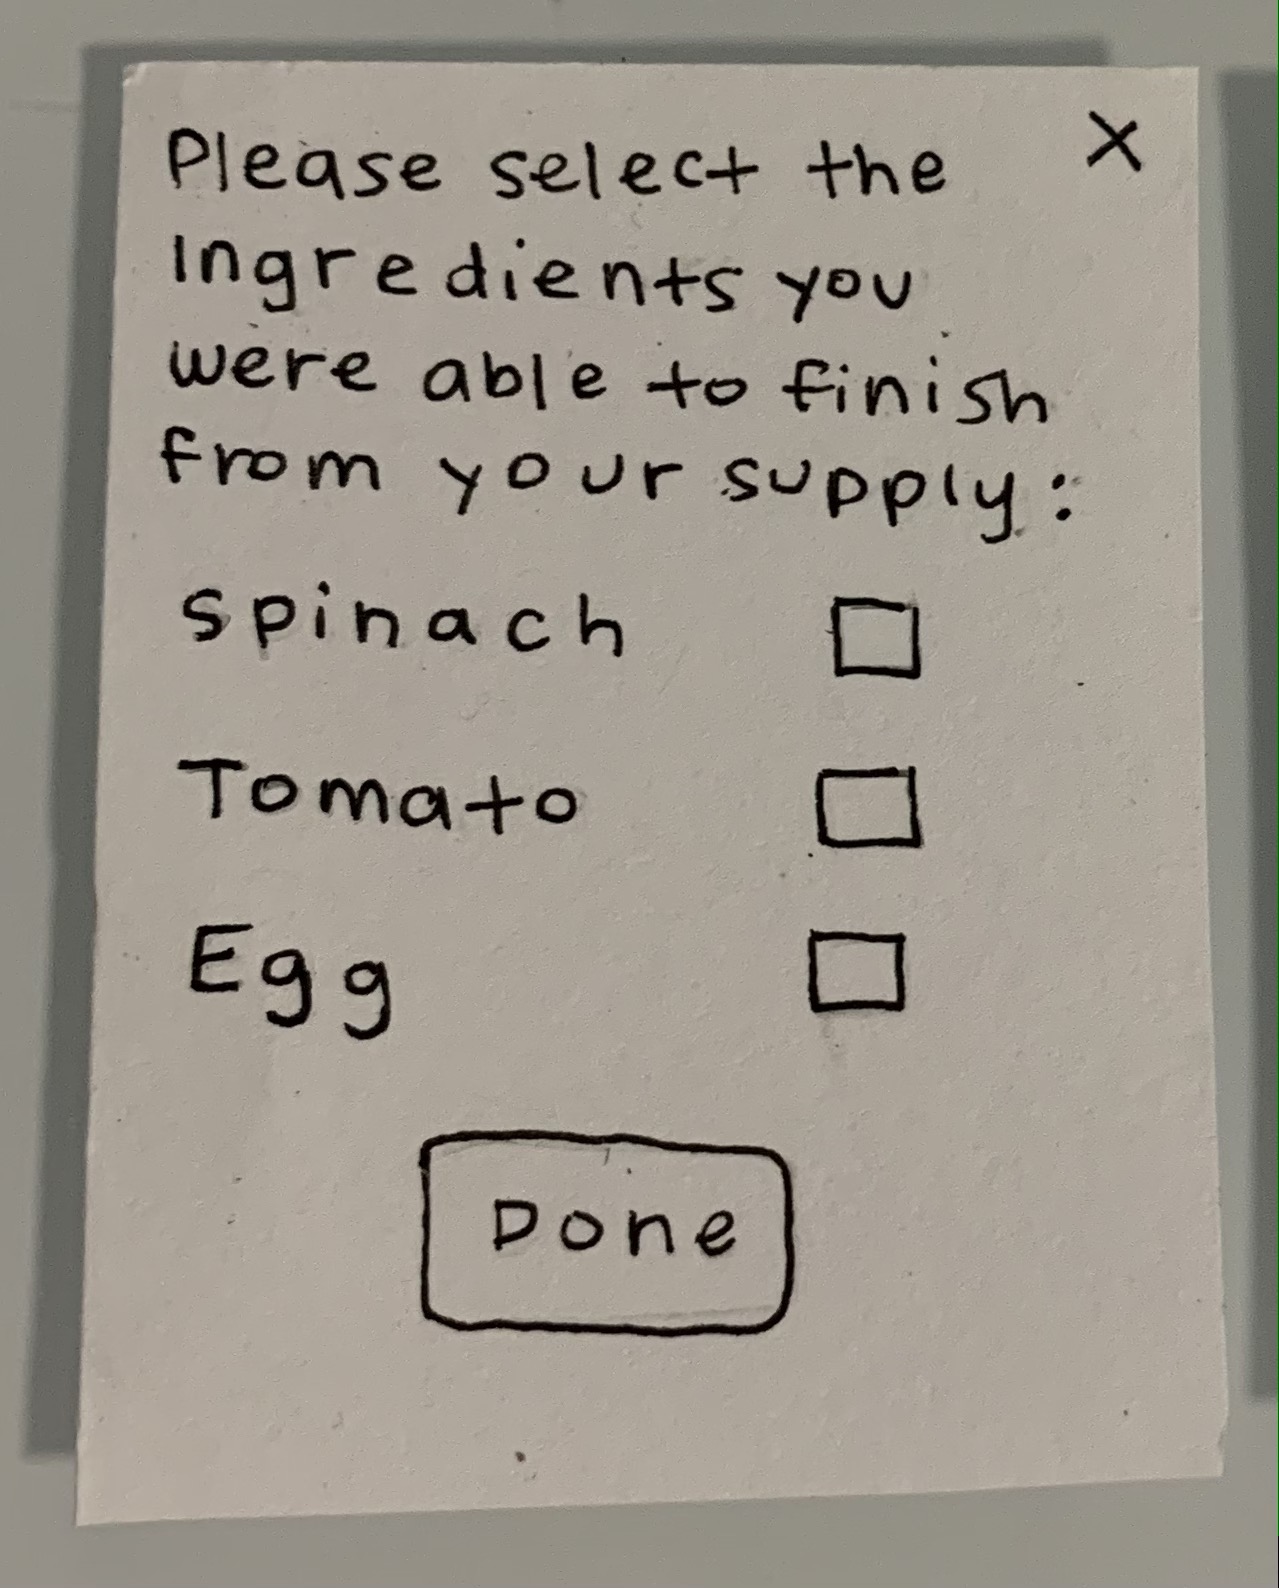 Please select the
Ingredients you
were able to finish
from your supply:
Spinach
Tomato
Egg
Done